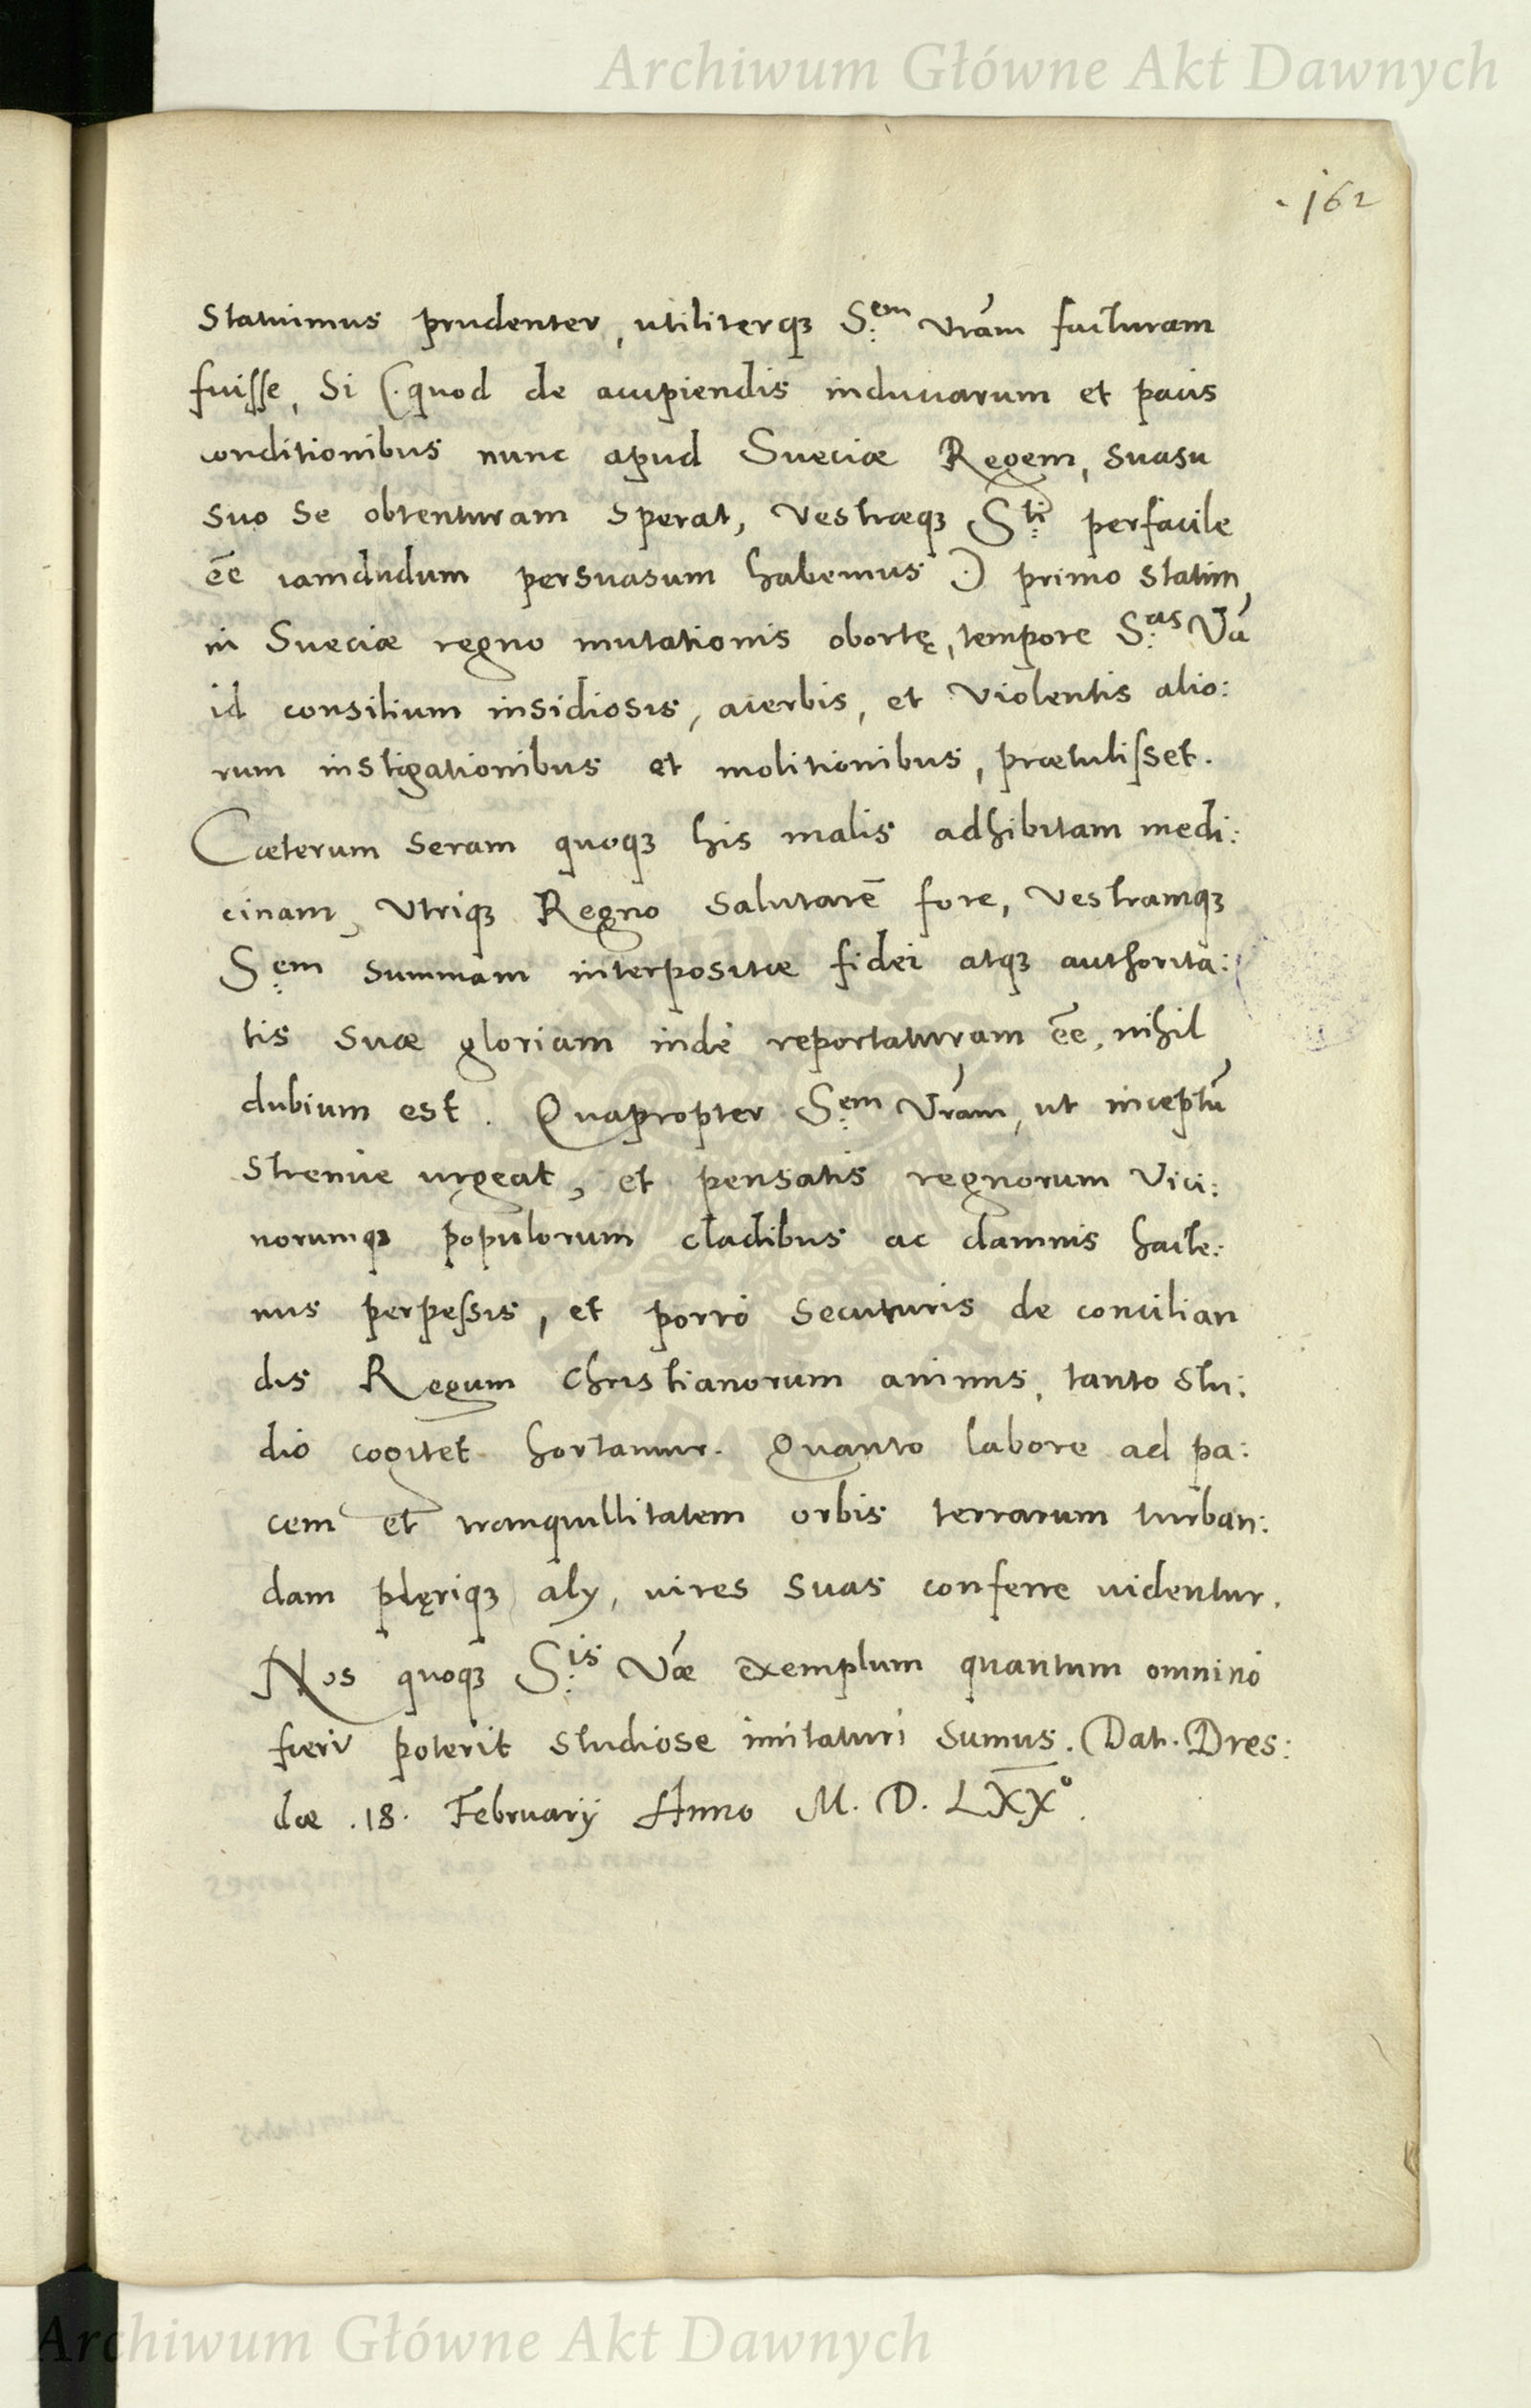 Archiwum Główne Akt Dawnych
162
Statuimus prudenter, utiliterqꝫ S.em Vrām facturam
fuisse, Si (. quod de accipiendis induciarum et pacis
conditionibus nunc apud Sueciæ Regem, suasu
suo se obtenturam sperat, Vestræqꝫ S.ti perfacile
eē̄ iamdudum persuasum habemus .) primo statim,
in Sueciæ regno mutationis obortę, tempore S.as Vā
id consilium insidiosis, acerbis, et violentis alio:
rum instigationibus et molitionibus, prætulisset.
Cæterum seram quoqꝫ his malis adhibitam medi:
cinam, Vtriqꝫ Regno salutarē fore, Vestramqꝫ
S.em summam interpositæ fidei atqꝫ authorita:
tis suæ gloriam indè reportaturam eē̄, nihil
dubium est. Quapropter S.em Vrām, ut inceptū
strenuè urgeat, et pensatis regnorum Vici:
norumqꝫ populorum cladibus ac damnis hacte:
nus perpessis, et porrò secuturis de concilian
dis Regum Christianorum animis, tanto stu:
dio cogitet hortamur. Quanto labore ad pa:
cem et tranquillitatem orbis terrarum turban:
dam plęriqꝫ aly, uires suas conferre uidentur.
Nos quoqꝫ S.is Vāe exemplum quantum omninò
fieri poterit studiose imitaturi sumus. Dat. Dres:
dæ .18. Februarij Anno M. D. LXX°.
Archiwum Główne Akt Dawnych